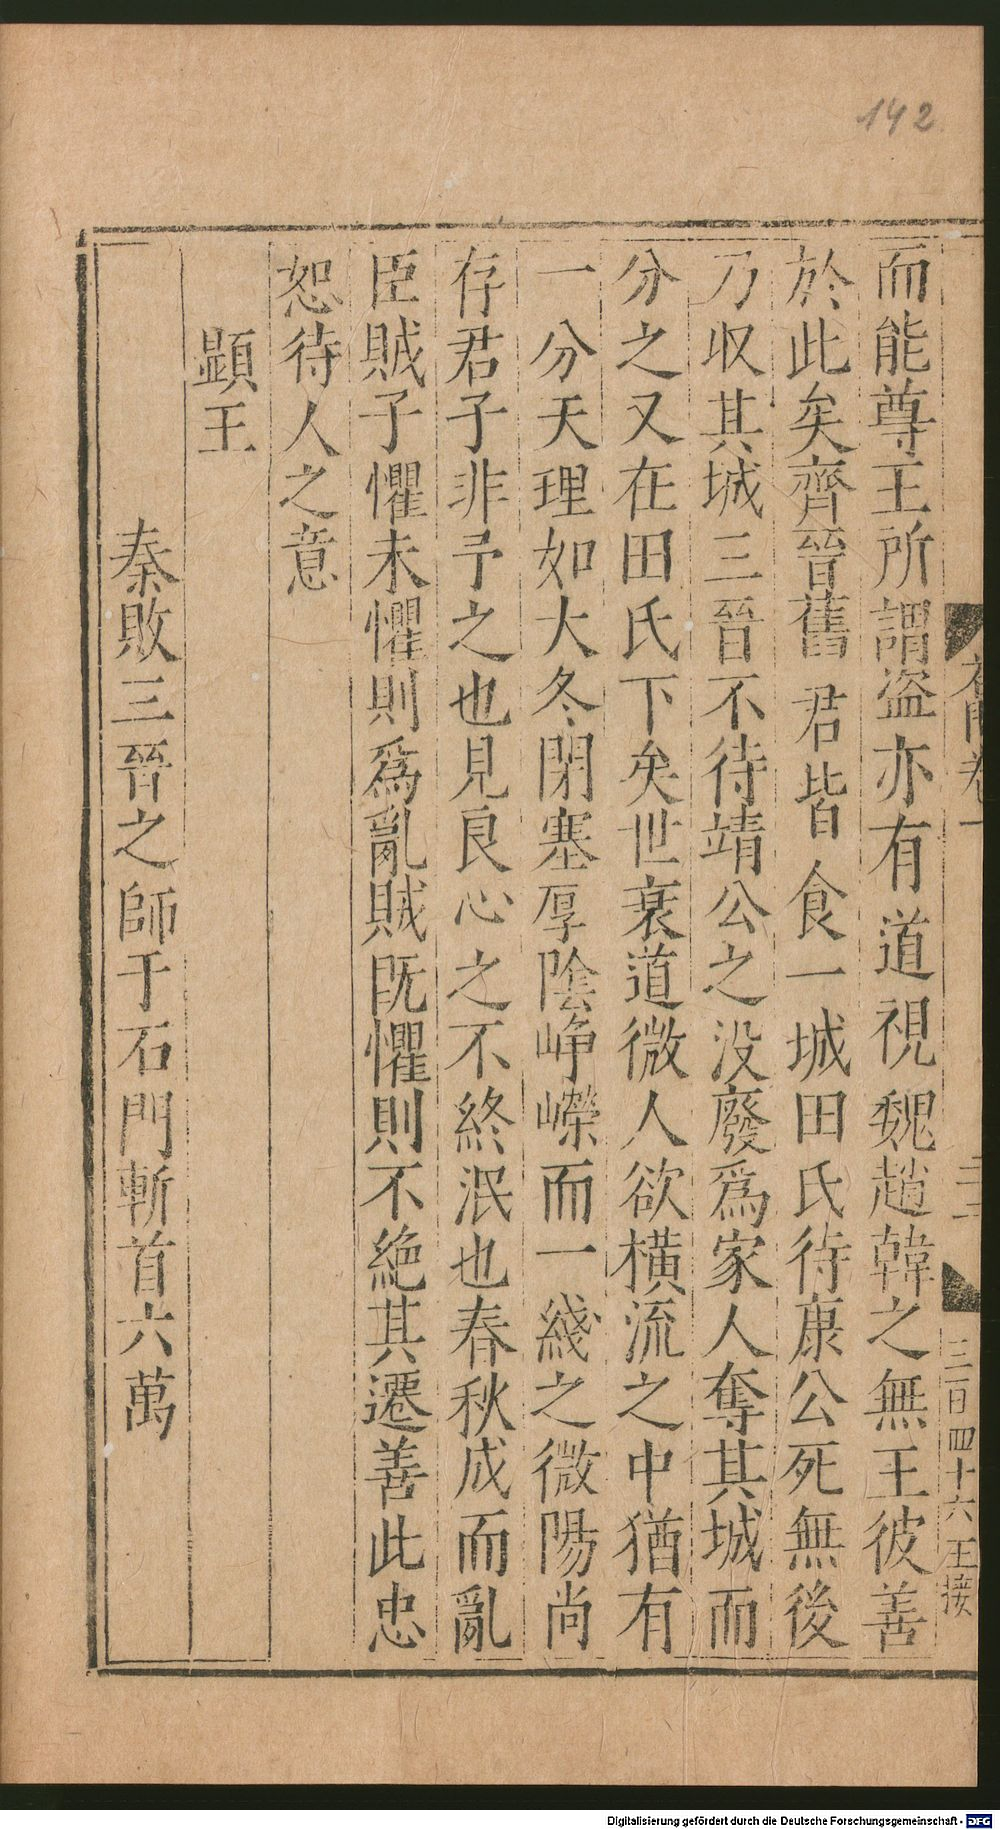 142
而能尊王所謂盗亦有道視魏趙韓之無王彼善
於此矣齊晉舊君皆食一城田氏待康公死無後
乃収其城三晉不待靖公之没廢爲家人奪其城而
分之又在田氏下矣世衰道微人欲横流之中猶有
一分天理如大冬閉塞厚陰崢嶸而一綫之微陽尚
存君子非予之也見良心之不終泯也春秋成而亂
臣賊子懼未懼則爲亂賊既懼則不絶其遷善此忠
恕待人之意
顕王
秦敗三晉之師于石門斬首六萬
卷一
三百四十六 王接
Digitalisierung gefördert durch die Deutsche Forschungsgemeinschaft - DFG